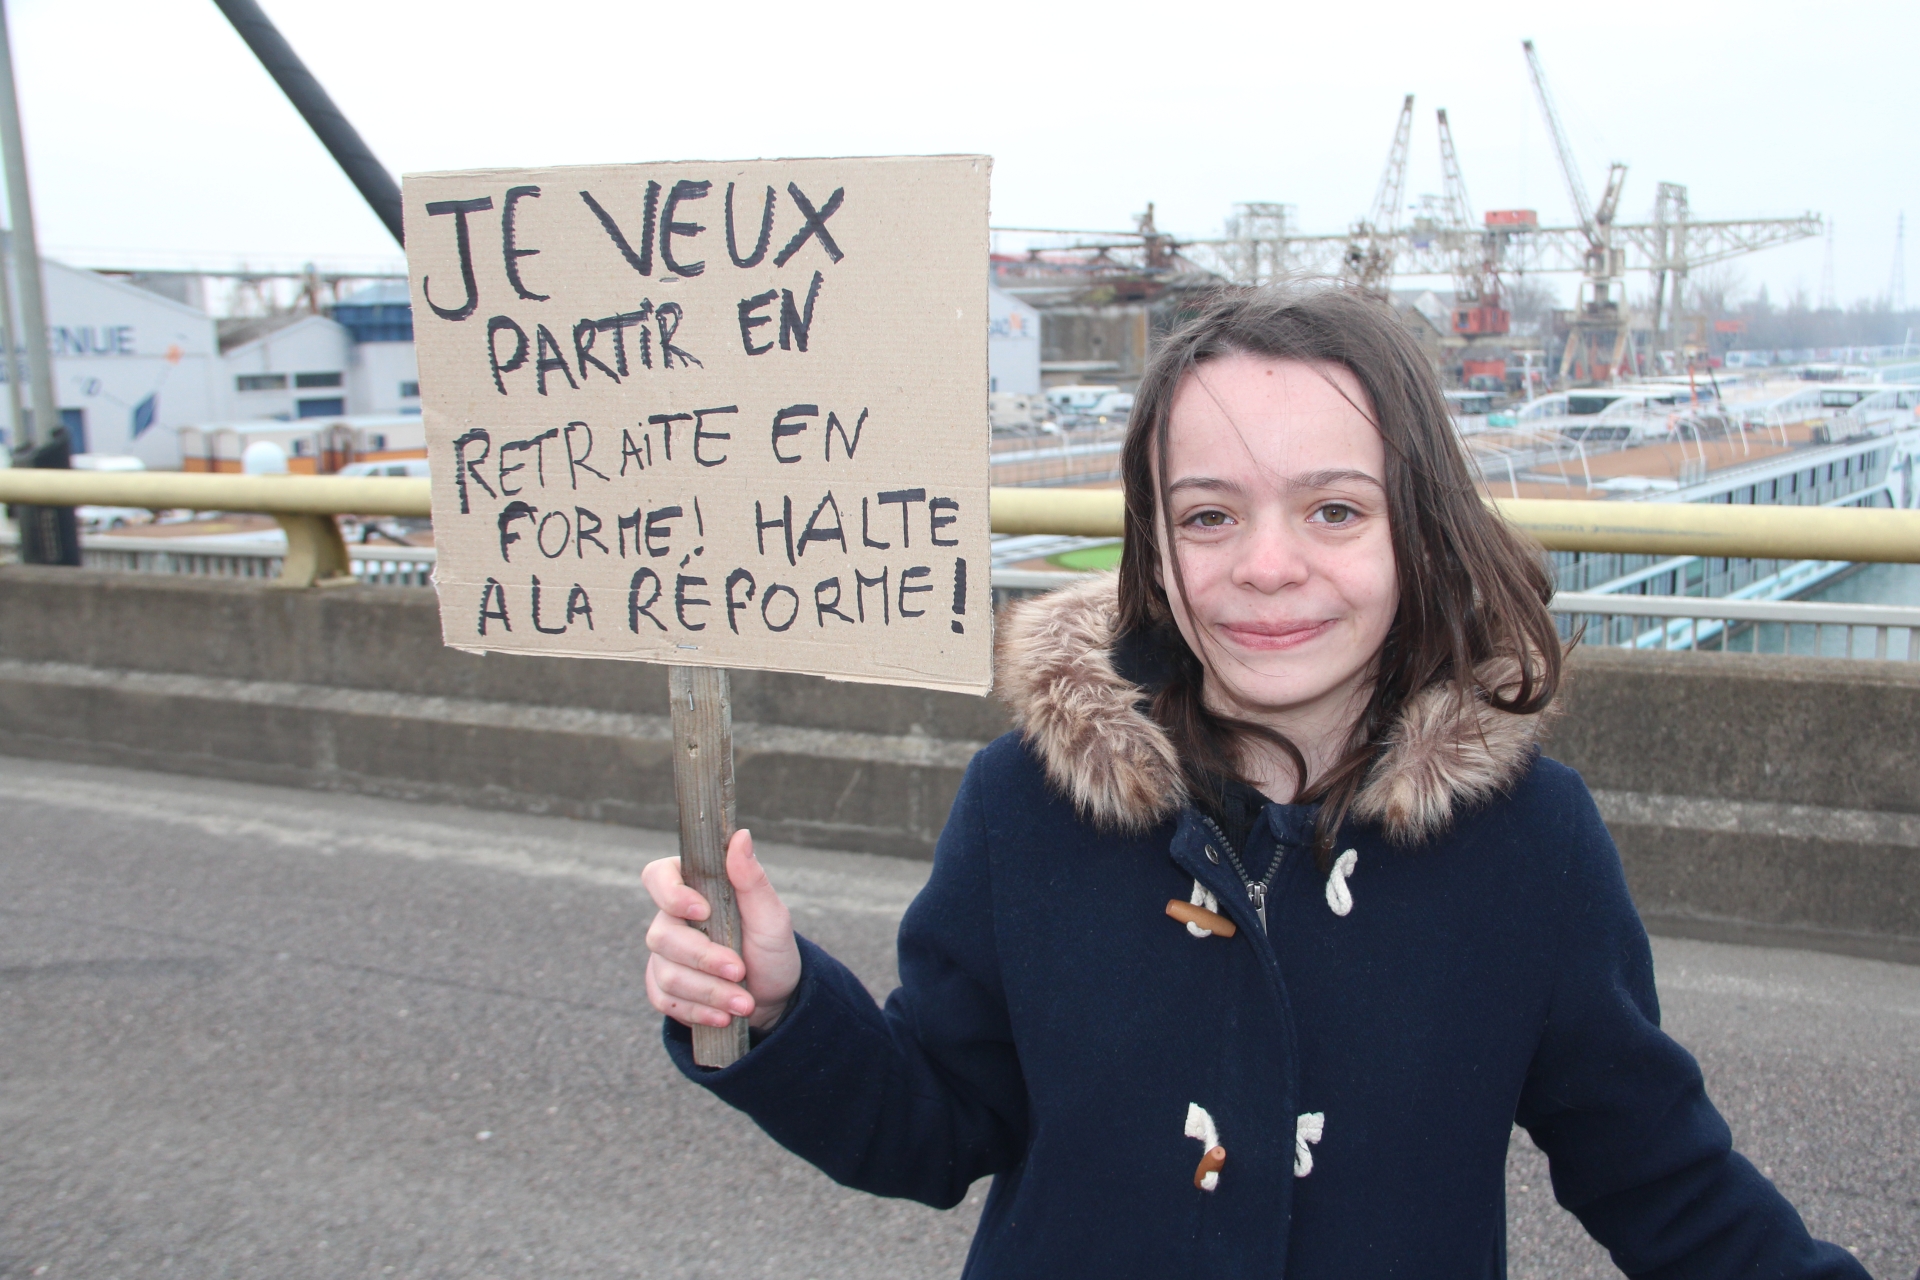 JE VEUX
PARTIR EN
RETRAITE EN
FORME! HALTE
A LA RÉFORME!
ENUE